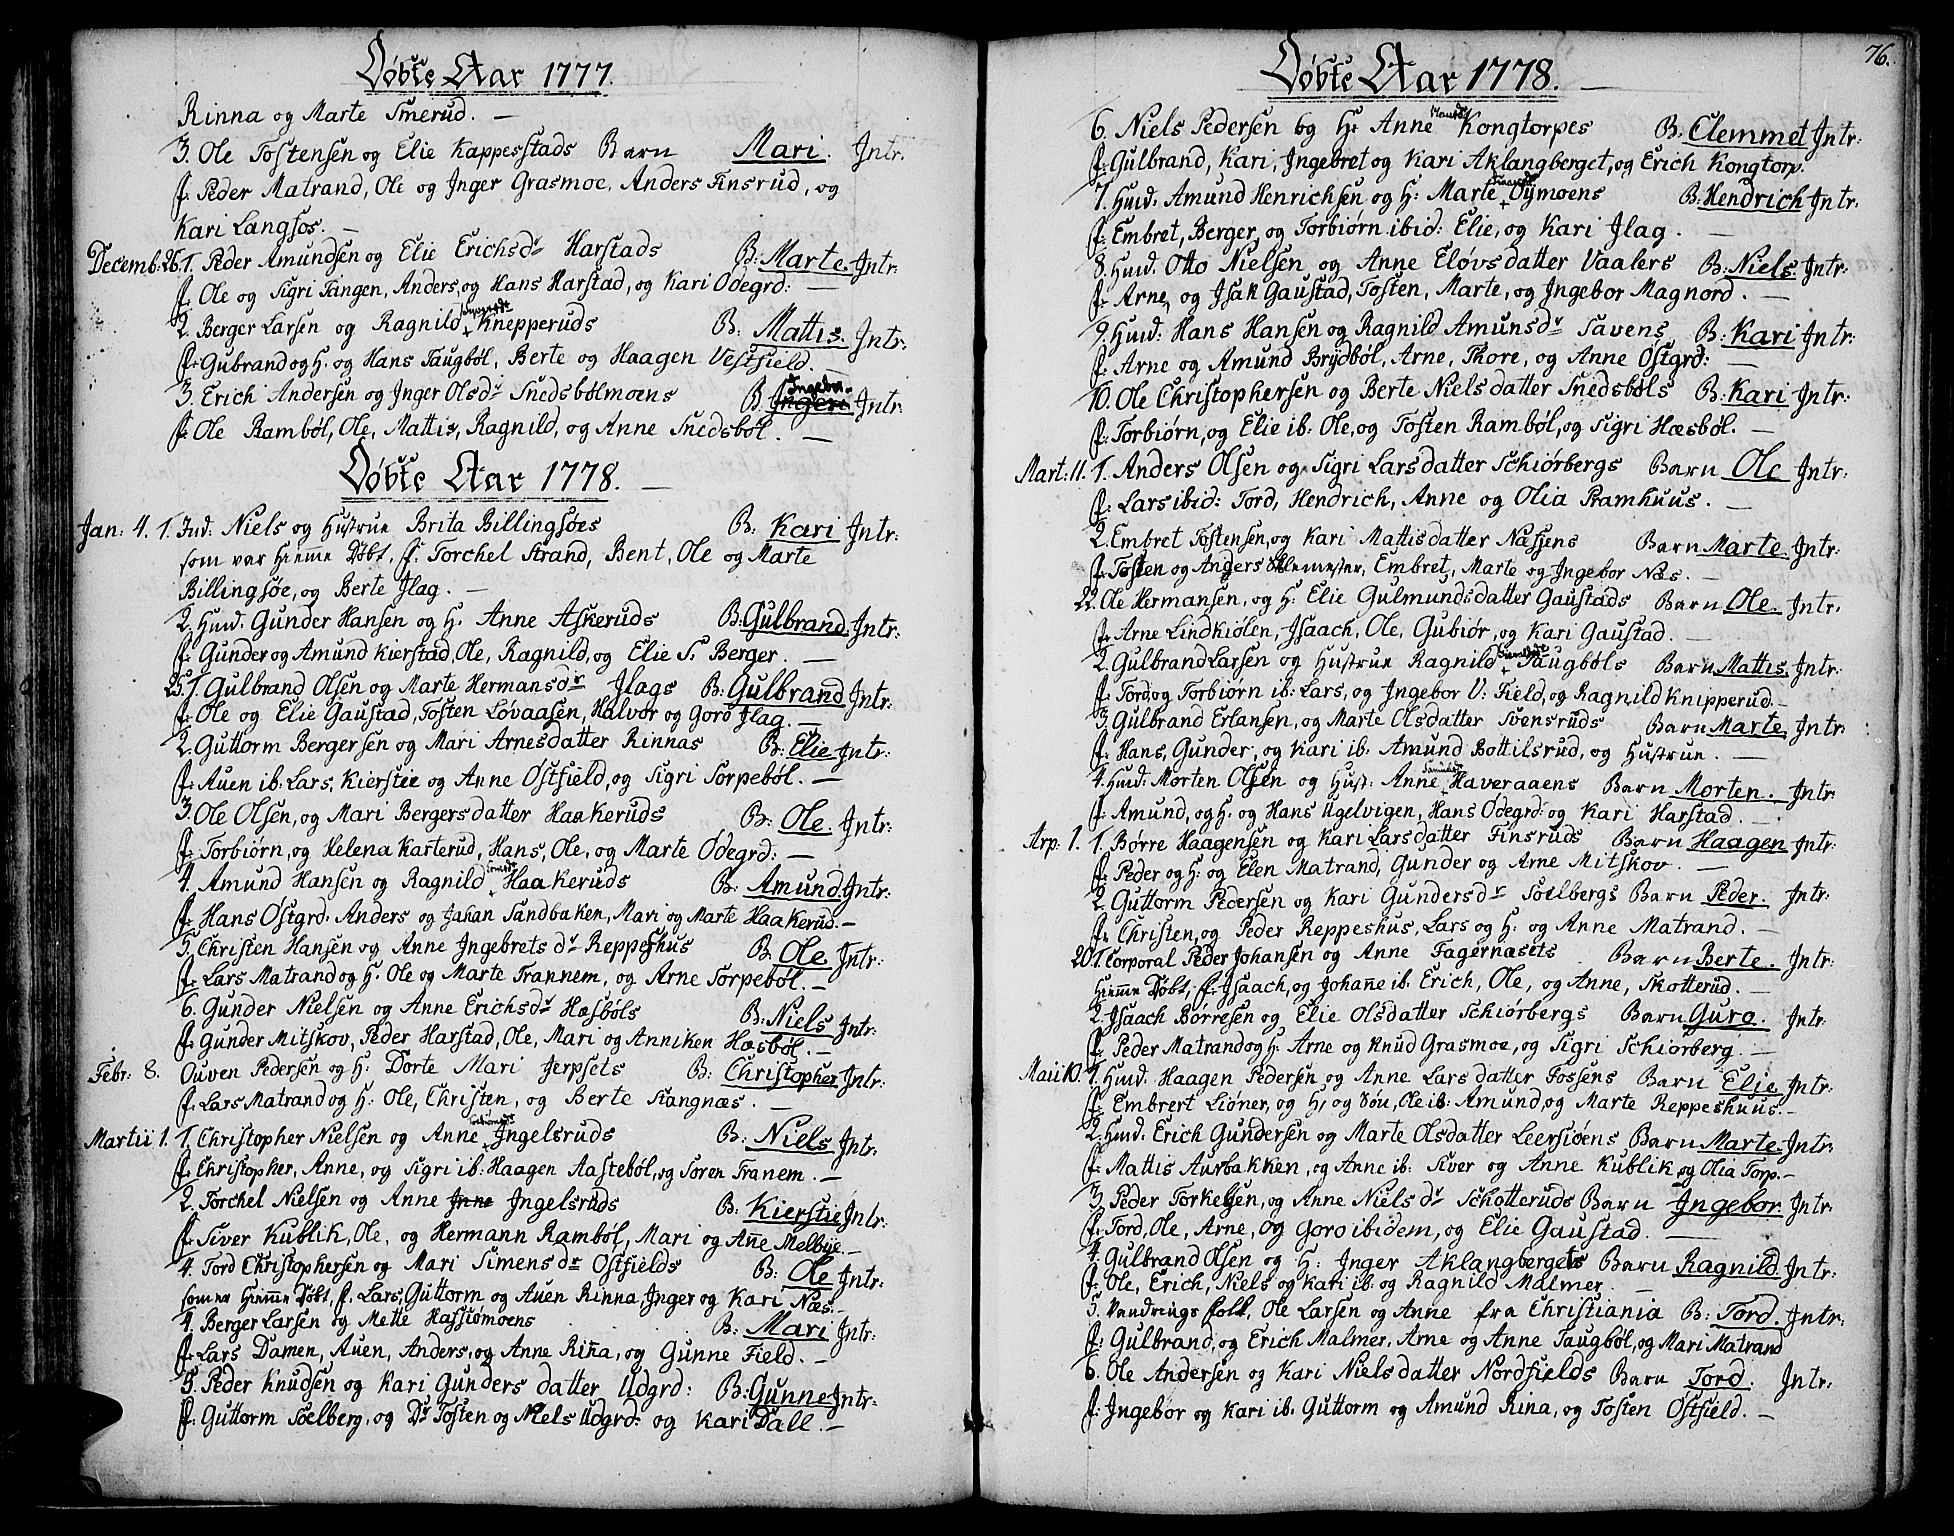 Døbte Aar 1777.
Rinna og Marte Smerud. —
3. Ole Tostensen og Elie Kappesstads Barn Mari. Jntr.
f. Peder Matrand, Ole og Jnger Grasmoe, Anders Finsrud, og
Kari Langsos. —
Decemb: 26. 1. Peder Amundsen og Elie Erichsdr Harstads B: Marte. Jntr:
f. Ole og Sigri Tangen, Anders, og Hans Harstad, og Kari Ödegrd: —
2. Berger Larsen og Ragnild Knepperuds B: Mattis. Jntr:
f. Gubrand og H: og Hans Taugböl, Berte og Haagen Vestfield.
3. Erich Andersen og Jnger Olsdr Snedsbølmoens B: Jngebor. Jntr:
f. Ole Ramböl, Ole, Mattis, Ragnild, og Anne Snedsböl. —
Døbte Aar 1778. —
Jan: 4. 1. Ind: Niels og Hustrue Brita Billingsöes B: Kari Jntr:
som var Hieme Döbt, f. Torchel Strand, Bent, Ole og Marte
Billingsöe, og Berte Jlag. —
2. Huusd. Gunder Hansen og H. Anne Askeruds B: Gulbrand. Jntr:
f. Gunder og Amund Kierstad, Ole, Ragnild, og Elie S. Berger. —
25. 1. Gulbrand Olsen og Marte Hermansdr Jlags B: Gulbrand Jntr:
f. Ole og Elie Gaustad, Tosten Lövaasen, Halvor og Goro Jlag. —
2. Guttorm Bergersen og Mari Arnesdatter Rinnas B: Elie Jntr:
f. Auen ib: Lars, Kierstie og Anne Östfield, og Sigri Torpeböl. —
3. Ole Olsen, og Mari Bergersdatter Haakeruds B: Ole. Jntr:
f. Torbiörn, og Helena Karterud, Hans, Ole, og Marte Ödegrd: —
4. Amund Hansen og Ragnild Haakeruds B: Amund. Jntr:
f. Hans Östgrd: Anders og Johan Sandbaken, Mari og Marte Haakerud. —
5. Christen Hansen og Anne Jngebretsdr Reppeshus B: Ole Jntr:
f. Lars Matrand og H: Ole og Marte Trannem, og Arne Torpeböl. —
6. Gunder Nielsen og Anne Erichsdr Hæsböls B: Niels Jntr:
f. Gunder Mitskov, Peder Harstad, Ole, Mari og Anniken Hæsböl. —
Febr: 8. Ouven Pedersen og H: Dorte Mari Jerpsets B: Christopher Jntr:
f. Lars Matrand og H: Ole, Christen, og Berte Stangnæs. —
Martii 1. 1. Christopher Nielsen og Anne Jngelsruds B: Niels Jntr:
f. Christopher, Anne, og Sigri ib: Haagen Aasteböl, og Soren Tranem. —
2. Torchel Nielsen og Anne Jngelsruds B: Kierstie Jntr:
f. Siver Kublik, Ole, og Hermann Ramböl, Mari og Ane Melbye. —
4. Tord Christophersen og Mari Simensdr Östfields B: Ole Jntr:
som er Hieme Döbt, f. Lars, Guttorm og Auen Rinna, Jnger og Kari Næs. —
4. Berger Larsen og Mette Hassiömoens B: Mari Jntr:
f. Lars Damen, Auen, Anders, og Anne Rina, og Gunne Field. —
5. Peder Knudsen og Kari Gunders datter Udgrd: B: Gunne Jntr:
f. Guttorm Soelberg, og Dr. Tosten og Niels Udgrd: og Kari Dall. —
76.
Døbte Aar 1778. —
6. Niels Pedersen og H: Anne Kongtorpes B: Clemmet Jntr:
f. Gulbrand, Kari, Jngebret og Kari Aklangberget, og Erich Kongtorp.
7. Huusd. Amund Henrichsen og H: Marte Öymoens B: Hendrich Jntr:
f. Embret, Berger, og Torbiörn ibid: Elie, og Kari Jlag. —
8. Huusd. Otto Nielsen og Anne Elövsdatter Vaalers B: Niels. Jntr:
f. Arne, og Jsak Gaustad, Tosten, Marte, og Jngebor Magnord. —
9. Huusd: Hans Hansen og Ragnild Amunsdr Savens B: Kari Jntr:
f. Arne og Amund Brydböl, Arne, Thore, og Anne Östgrd: —
10. Ole Christophersen og Berte Nielsdatter Snedsböls B: Kari Jntr:
f. Torbiörn, og Elie ib: Ole, og Tosten Ramböl, og Sigri Hæsböl. —
Mart: 11. 1. Anders Olsen og Sigri Larsdatter Schiörbergs Barn Ole Jntr:
f. Lars ibid: Tord, Hendrich, Anne og Olia Pramhuus. —
2. Embret Tostensen, og Kari Mattisdatter Næssens Barn Marte. Jntr:
f. Tosten og Anders Klemester, Embret, Marte og Jngebor Næs. —
22. Ole Hermansen, og H: Elie Gulmundsdatter Gaustads Barn Ole. Jntr.
f. Arne Lindkiölen, Jsaach, Ole, Gubiör, og Kari Gaustad. —
2. Gulbrand Larsen og Hustrue Ragnild Taugböls Barn Mattis. Jntr:
f. Tord og Torbiörn ib: Lars, og Jngebor V: Field, og Ragnild Knipperud. —
3. Gulbrand Erlansen, og Marte Olsdatter Svensruds Barn Marte. Jntr:
f. Hans, Gunder, og Kari ib: Amund Bottilsrud, og Hustrue. —
4. Huusd: Morten Olsen og Hust: Anne Haveraaens Barn Morten. Jntr:
f. Amund, og H: og Hans Ugelvigen, Hans Ödegrd: og Kari Harstad. —
Arp: 1. 1. Börre Haagensen og Kari Larsdatter Finsruds Barn Haagen Jntr:
f. Peder og H: og Elen Matrand, Gunder og Arne Mitskov. —
2. Guttorm Pedersen og Kari Gundersdr Soelbergs Barn Peder. Jntr:
f. Christen, og Peder Reppeshus, Lars og H: og Anne Matrand. —
20. 1. Corporal Peder Johansen og Anne Fagernæsets Barn Berte. Jntr:
Hieme Döbt, f. Jsaach, og Johane ib: Erich, Ole, og Anne, Skotterud. —
2. Jsaach Borresen og Elie Olsdatter Schiörbergs Barn Guro. Jntr:
f. Peder Matrand og H: Arne og Knud Grasmoe, og Sigri Schiörberg. —
Maii 10. 1. Huusd: Haagen Pedersen og Anne Larsdatter Fossens Barn Elie Jntr:
f. Embrert Liöner, og H, og Sön, Ole ib: Amund, og Marte Reppeshuus. —
2. Huusd: Erich Gundersen og Marte Olsdatter Leersiöens Barn Marte. Jntr:
f. Mattis Aurbakken, og Anne ib: Siver og Anne Kublik og Olia Torp. —
3. Peder Torkelsen, og Anne Nielsdr Schotteruds Barn Jngebor Jntr:
f. Tord, Ole, Arne, og Goro ibidem, og Elie Gaustad. —
4. Gulbrand Olsen og H: Jnger Aklangbergets Barn Ragnild Jntr:
f. Ole, Erich, Niels og Kari ib: og Ragnild Malmer. —
5. Vandrings folk, Ole Larsen og Anne fra Christiania B: Tord. Jntr:
f. Gulbrand, og Erich Malmer, Arne og Anne Taugböl, og Mari Matrand
6. Ole Andersen og Kari Nielsdatter Nordfields Barn Tord. Jntr:
f. Jngebor og Kari ib: Guttorm og Amund Rina, og Tosten Östfield. —